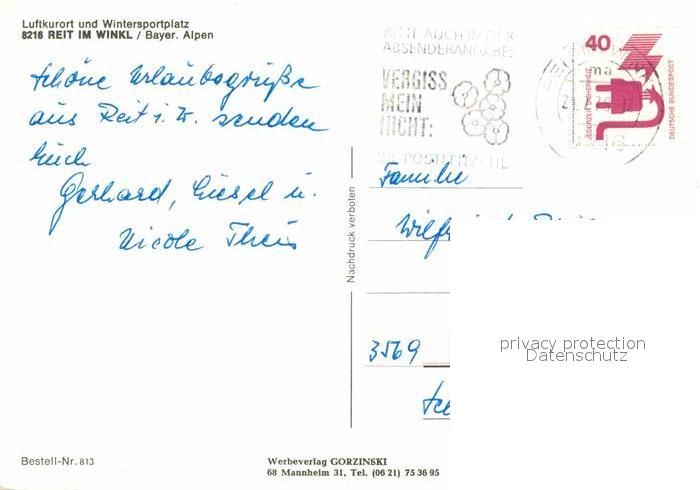 Luftkurort und Wintersportplatz
8216 REIT IM WINKL / Bayer. Alpen
Schöne Urlaubsgrüße
aus Reit i. W. senden
Euch
Gerhard, Liesel u.
Nicole Theis
BITTE AUCH IN DER
ABSENDERANGABE:
VERGISS
MEIN
NICHT:
DIE POSTLEITZAHL
40
JEDERZEIT SICHERHEIT
DEUTSCHE BUNDESPOST
Nachdruck verboten
Familie
3569
privacy protection
Datenschutz
Bestell-Nr. 813
Werbeverlag GORZINSKI
68 Mannheim 31, Tel. (06 21) 75 36 95